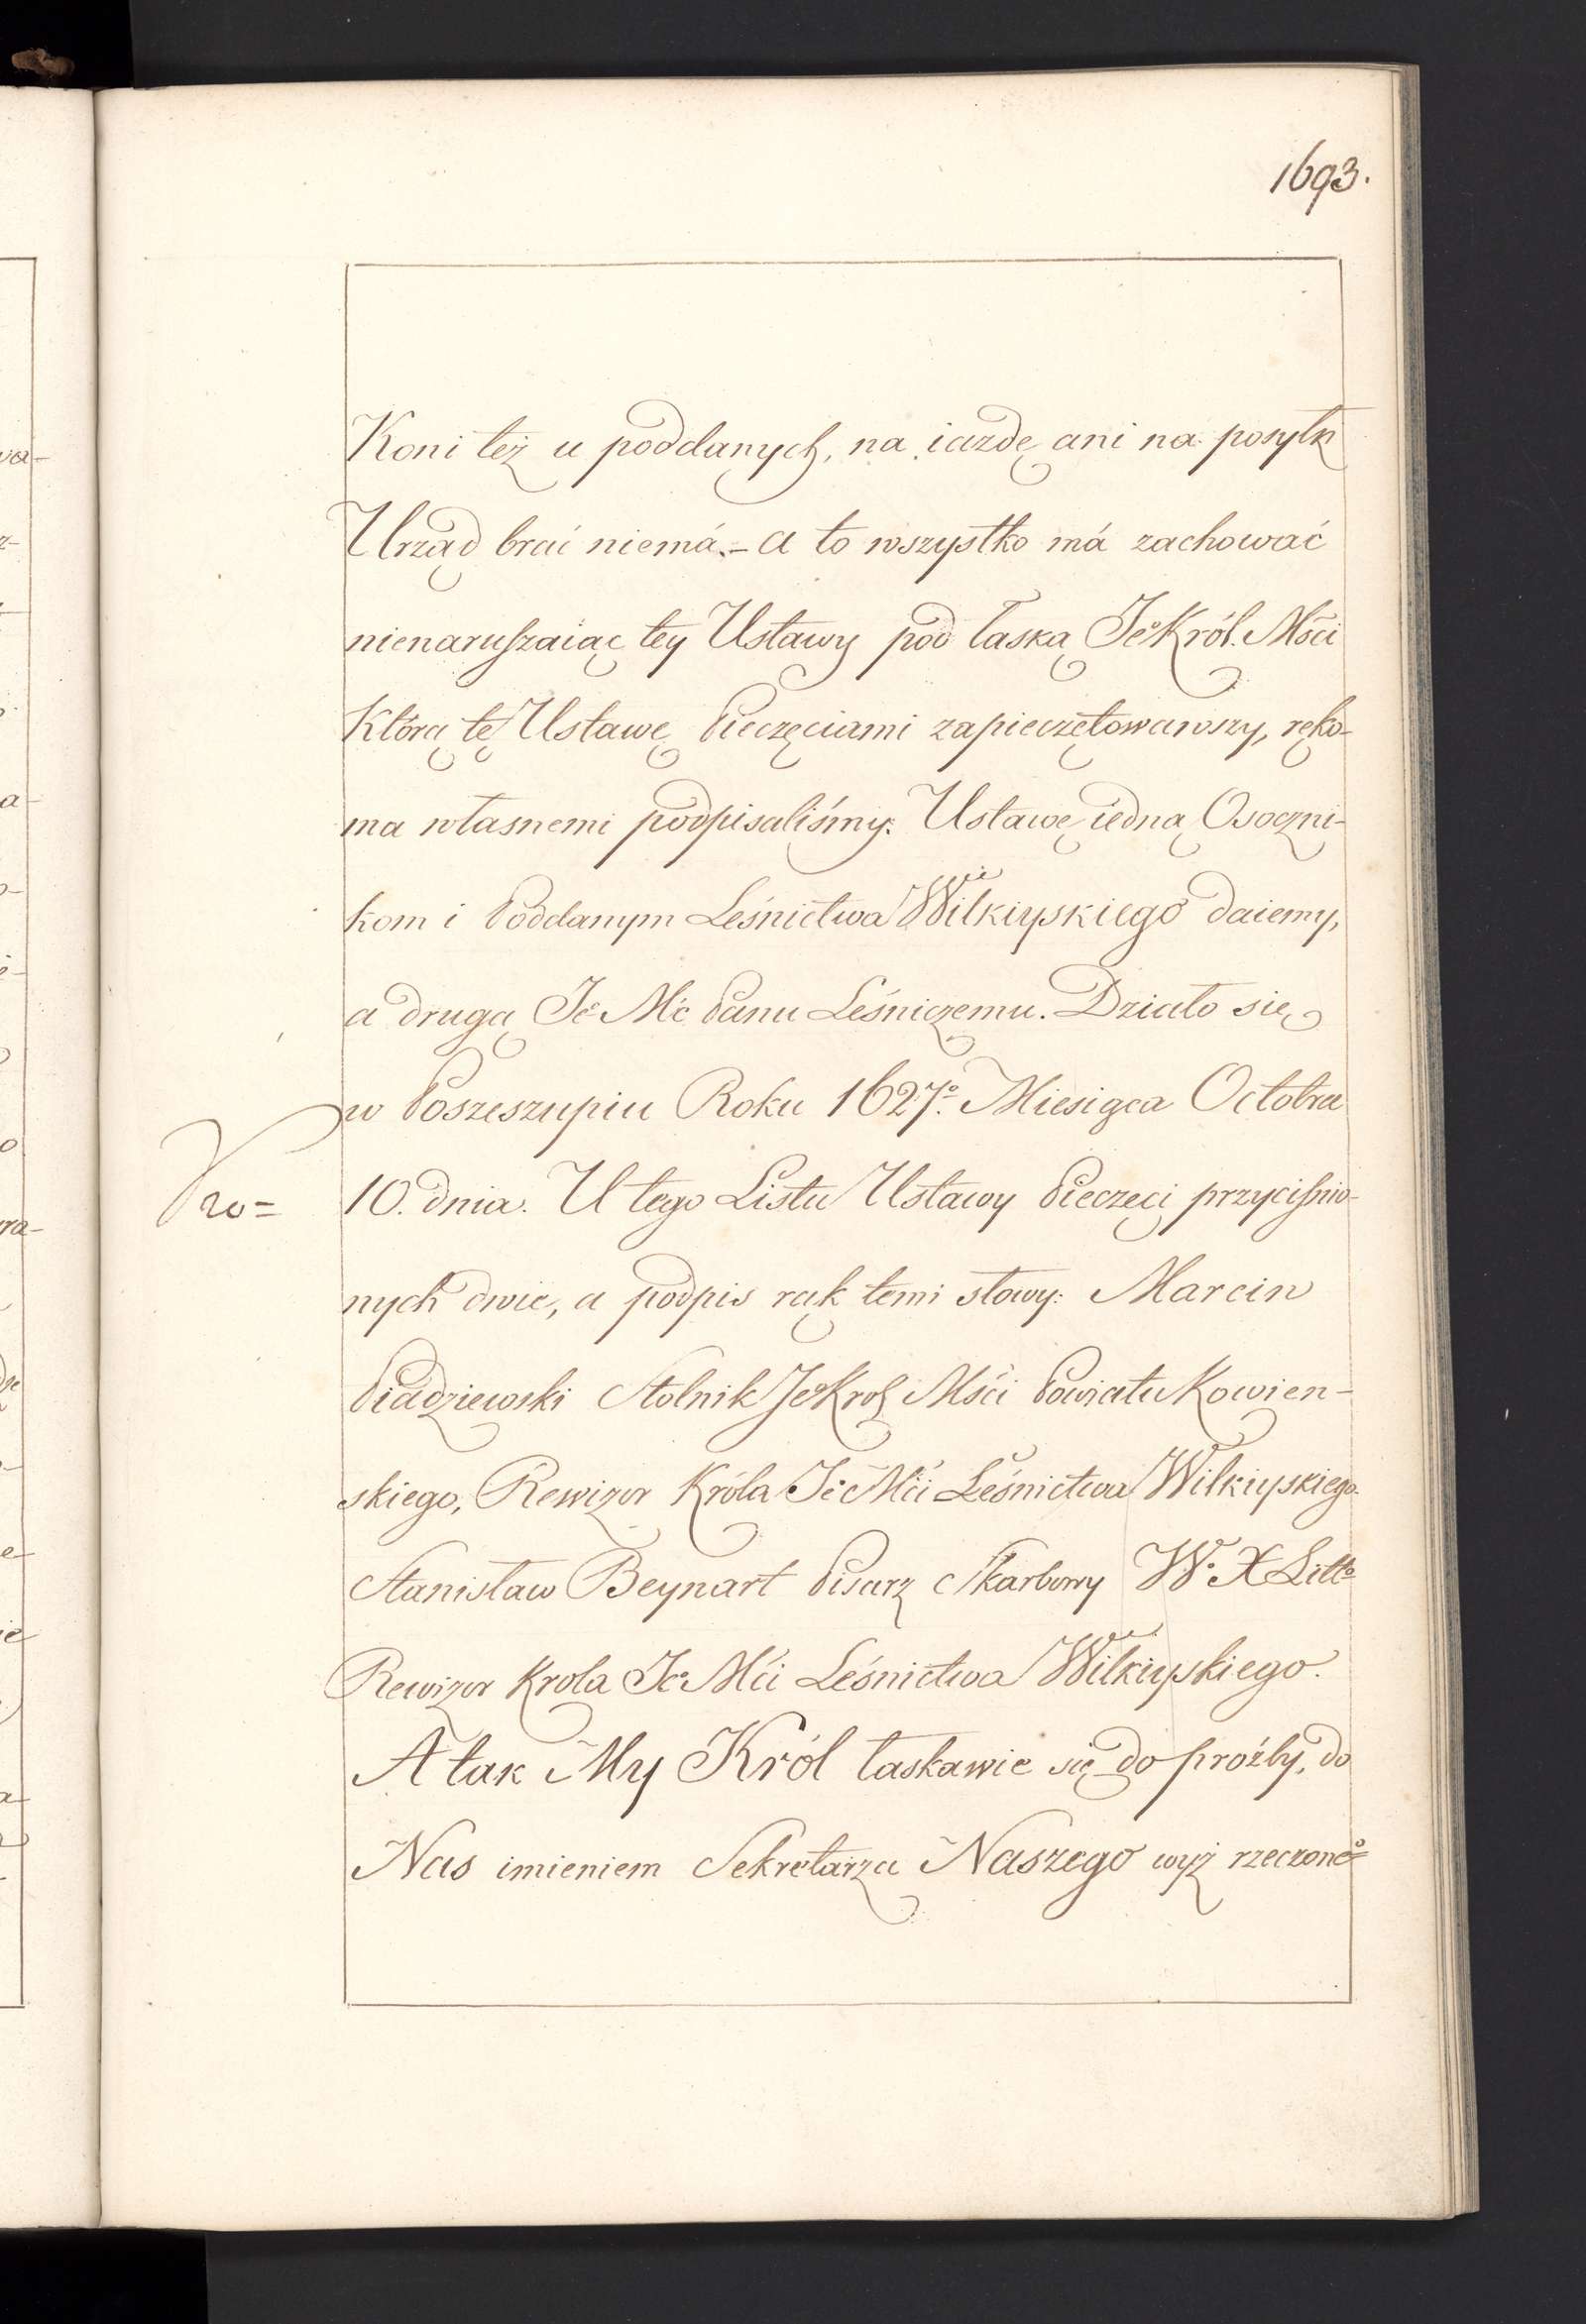 1693.
Koni też u poddanych, na iazdę ani na posyłk
Urząd brać niemá.- a to wszystko má zachować
nienaruszaiąc tey Ustawy pod łaską Je° Król. Mści
Którą tę Ustawę Pieczęciami zapieczętowawszy, ręko-
ma własnemi podpisaliśmy: Ustawę iedną Osoczni-
kom i Poddanym Leśnictwa Wilkiyskiego daiemy,
a drugą Je° Mć Panu Leśniczemu. Działo się
w Poszeszupiu Roku 1627°. Miesiąca Octobra
10. dnia. U tego Listu Ustawy Pieczęci przyciśnio-
nych dwie, a podpis rąk temi słowy: Marcin
Piadziewski Stolnik Je° Krol Mści Powiatu Kowien-
skiego, Rewizor Króla Je° Mści Leśnictwa Wilkiyskiego.
Stanisław Beynart Pisarz Skarbowy W° X Litt°
Rewizor Krola Je° Mści Leśnictwa Wilkiyskiego.
A tak My Król łaskawie się do proźby, do
Nas imieniem Sekretarza Naszego wyż rzeczone°=